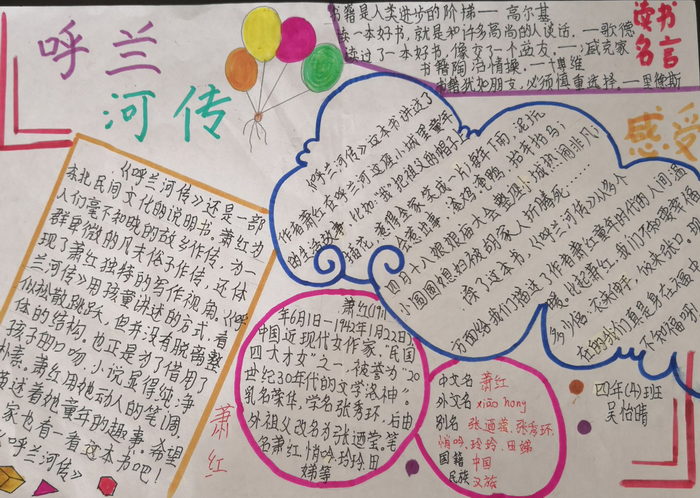 呼兰
河传
书籍是人类进步的阶梯——高尔基
读一本好书，就是和许多高尚的人谈话。——歌德
读过了一本好书，像交了一个益友。——臧克家
书籍陶冶情操。
书籍犹如朋友，必须慎重选择。
读书
名言
感受
《呼兰河传》还是一部
东北民间文化的说明书。萧红为
人们毫不知晓的故乡作传，为一
群卑微的凡夫俗子作传，还体
现了萧红独特的写作视角，《呼
兰河传》用孩童讲述的方式，看
似松散跳跃，但并没有脱离整
体的结构，也正是为了借用了
孩子的口吻，小说显得纯净、
朴素。萧红用她动人的笔调，
描述着她童年的趣事。希望
大家也看一看这本书吧！
《呼兰河传》
《呼兰河传》这本书讲述了
作者萧红在呼兰河这座小城里童年
的生活故事：比如：我把祖父的帽子上
插花，惹得全家笑成一片；每年下雨，泥坑
四月十八娘娘庙大会整座小城热闹非凡；
小团圆媳妇被胡家人折腾死……
除了这本书，《呼兰河传》从多个
方面给我们描述了作者萧红童年时代的人间温
暖。比起萧红，我们不知要幸福
多少倍。衣来伸手，饭来张口，现
在的我们真是身在福中
不知福啊！
萧红(1911
年6月1日—1942年1月22日)，
中国近现代女作家，“民国
四大才女”之一，被誉为“20
世纪30年代的文学洛神”。
乳名荣华，学名张秀环，后由
外祖父改名为张迺莹。笔
名萧红、悄吟、玲玲、田
娣等
萧
红
中文名 萧红
外文名 xiāo hóng
别名 张迺莹、张秀环、
悄吟、玲玲、田娣
国籍 中国
民族 汉族
四年(4)班
吴怡晴